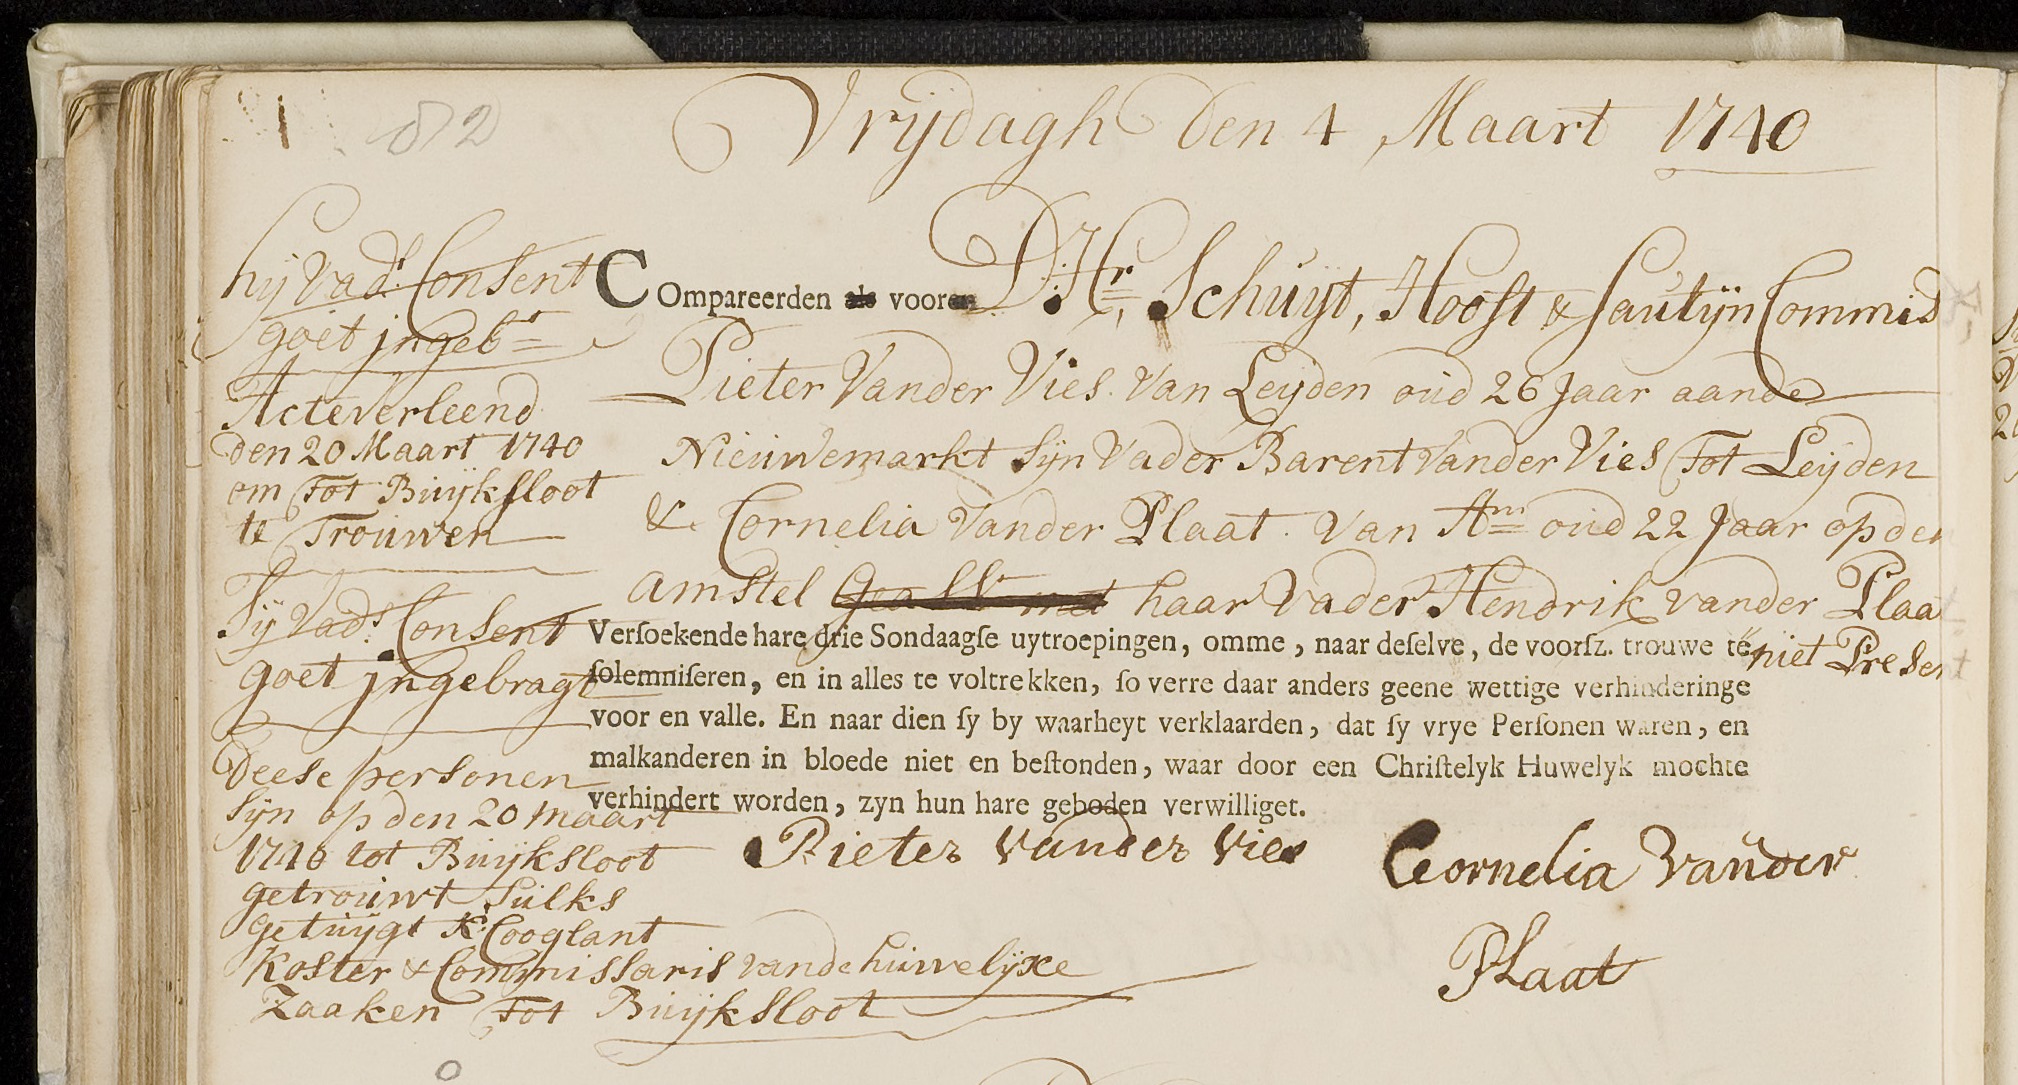 82
Vrijdagh Den 4 Maart 1740
hij Vadr. Consent
goet ingebt
Acte verleend
den 20 Maart 1740
om Tot Buijksloot
te Trouwen
Sij Vads. Consent
goet ingebragt
Deese personen
Sijn op den 20 maart
1740 tot Buijksloot
getrouwt Sulks
getuijgt K. Cooglant
Koster & Commissaris vande huwelijxe
Zaaken Tot Buijksloot
COmpareerden als vooren D: Hr. Schuyt, Hooft & Sautijn Commis
Pieter Vander Vies. Van Leyden oud 26 Jaar aande
Nieuwemarkt Sijn Vader Barent Vander Vies Tot Leijden
& Cornelia Vander Plaat. Van Am oud 22 Jaar op den
amstel met haar Vader Hendrik vander Plaat
niet Present
Verſoekende hare drie Sondaagſe uytroepingen, omme, naar deſelve, de voorſz. trouwe te
ſolemniſeren, en in alles te voltrekken, ſo verre daar anders geene wettige verhinderinge
voor en valle. En naar dien ſy by waarheyt verklaarden, dat ſy vrye Perſonen waren, en
malkanderen in bloede niet en beſtonden, waar door een Chriſtelyk Huwelyk mochte
verhindert worden, zyn hun hare geboden verwilliget.
Pieter Vander Vies
Cornelia Vander
Plaat